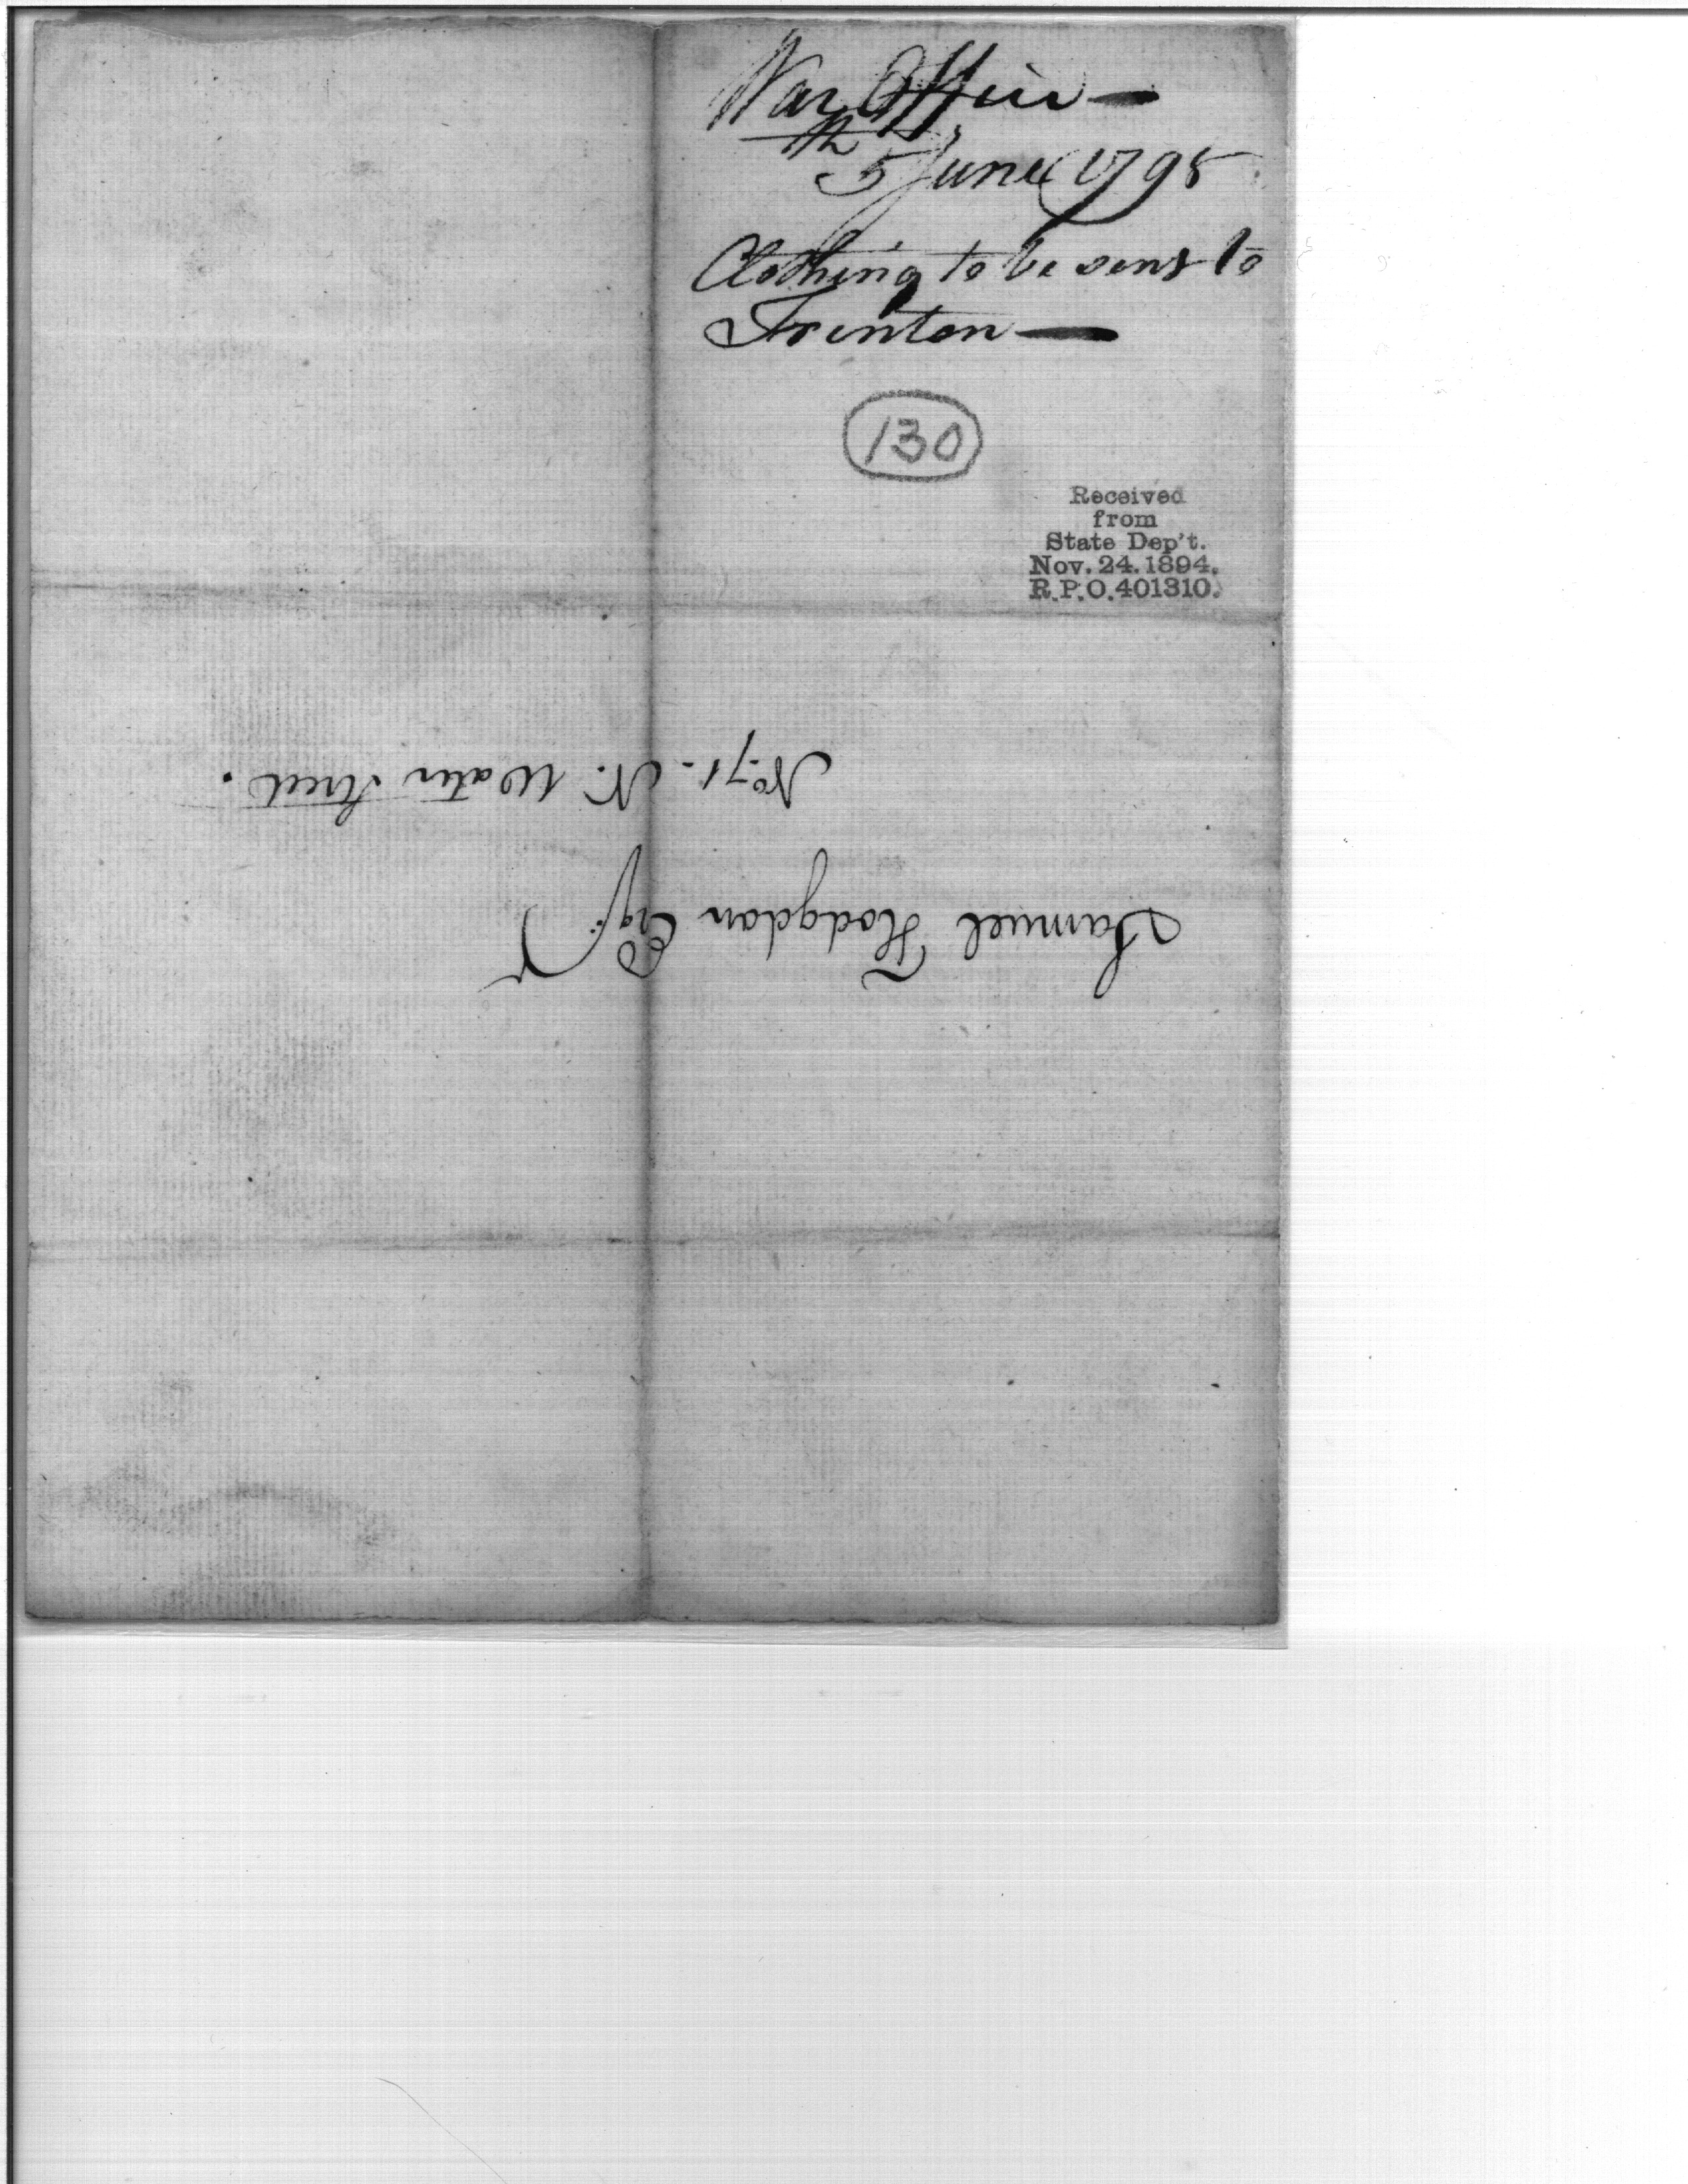 War Office —
5th June 1798
Clothing to be sent to
Trenton —
130
Received
from
State Dep't.
Nov. 24. 1894.
R.P.O. 401310.
Samuel Hodgdon Esqr
No. 71 - N. Water Street.